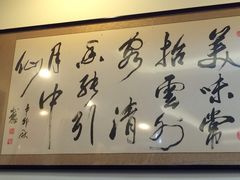 美味常
招雲外
客清
香能引
月中
仙
辛卯秋